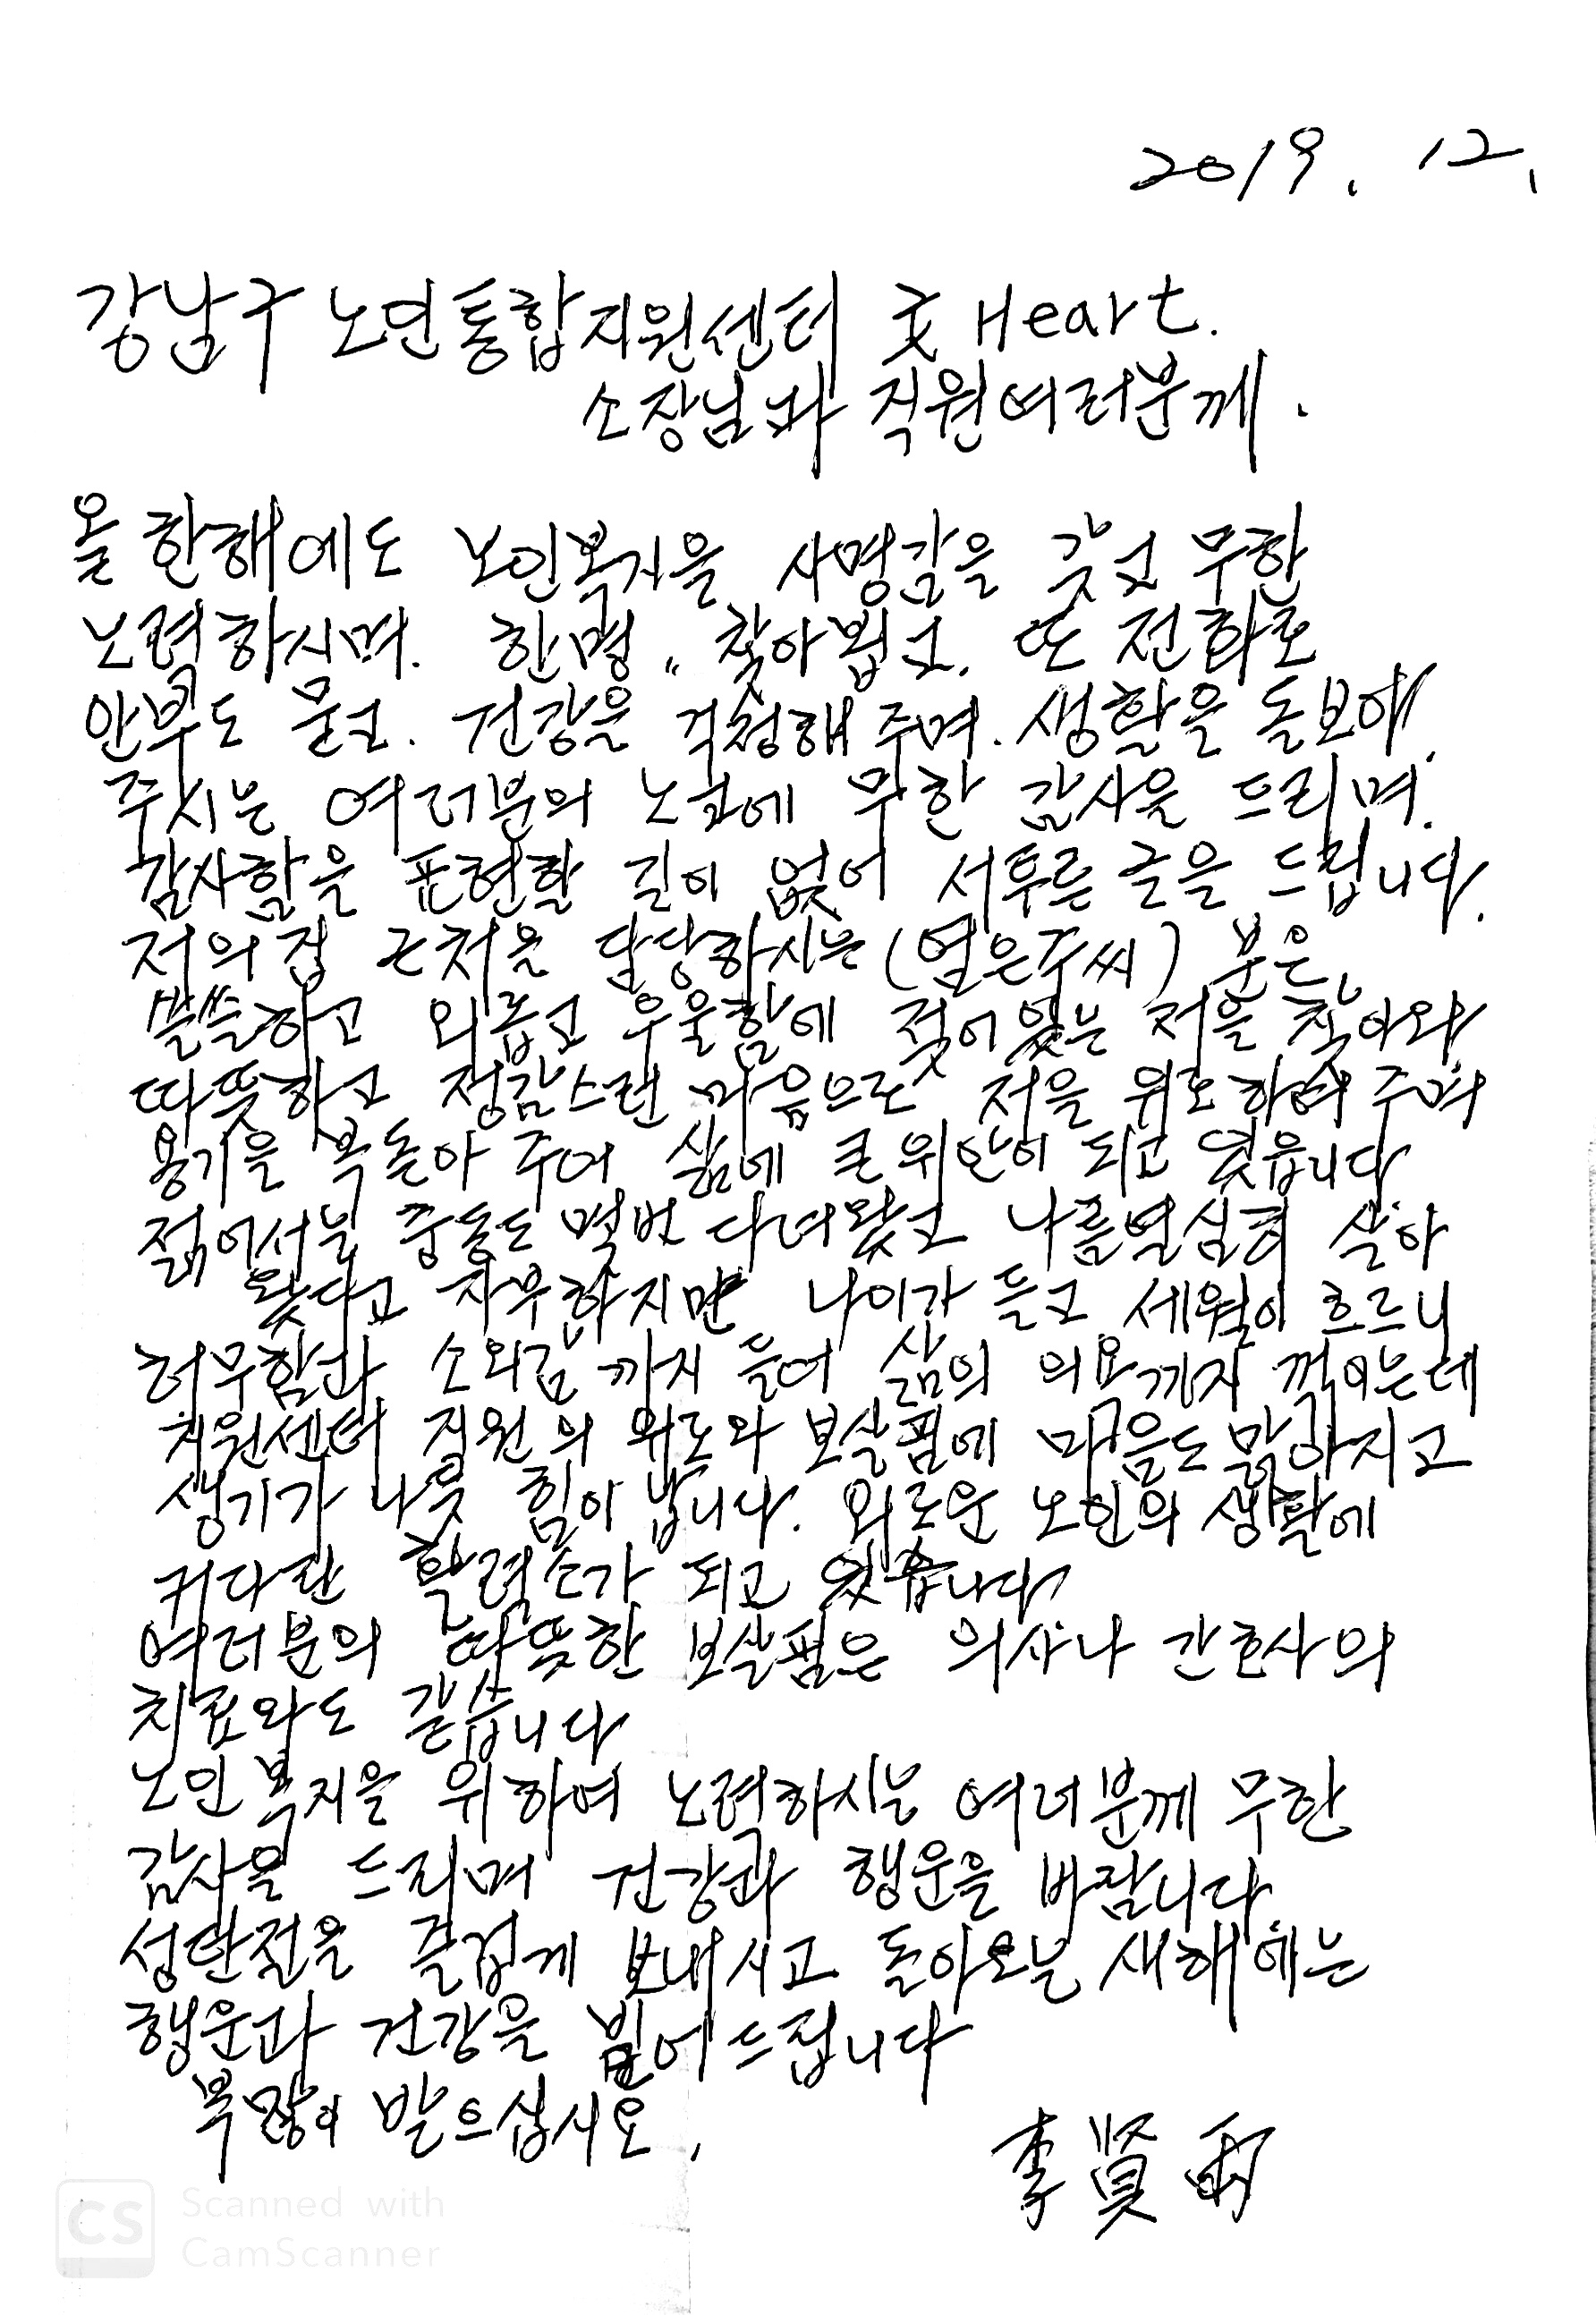 2019. 12.
강남구 노년통합지원센터 굿 Heart.
소장님과 직원여러분께.
올 한해에도 노인복지을 사명감을 갖고 무한
노력하시며. 한명 〃 찾아뵙고. 또 전화로
안부도 묻고. 건강을 걱정해 주며. 생활을 돌보아.
주시는 여러분의 노고에 무한 감사을 드리며.
감사함을 표현할 길이 없어 서투른 글을 드립니다.
저의집 근처을 담당하시는 (염은주씨) 분은,
쓸쓸하고 외롭고 우울함에 젖어있는 저을 찾아와
따뜻하고 정감스런 마음으로 저을 위로하여 주며
용기을 복돋아 주어 삶에 큰위안이 되고 있읍니다
젊어서는 중동도 몇번 다녀왔고 나름열심히 살아
왔다고 자부하지만 나이가 들고 세월이 흐르니
허무함과 소외감 까지 들어 삶의 의욕까지 꺽이는데
지원센터 직원의 위로와 보살핌에 마음도맑아지고
생기가 나듯 힘이 납니다. 외로운 노인의 생활에
커다란 활력소가 되고 있습니다
여러분의 따뜻한 보살핌은 의사나 간호사의
치료와도 같습니다
노인복지을 위하여 노력하시는 여러분께 무한
감사을 드리며 건강과 행운을 바랍니다.
성탄절을 즐겁게 보내시고 돌아오는 새해에는
행운과 건강을 빌어드립니다
복많이 받으십시요.
李賢
CS Scanned with
CamScanner